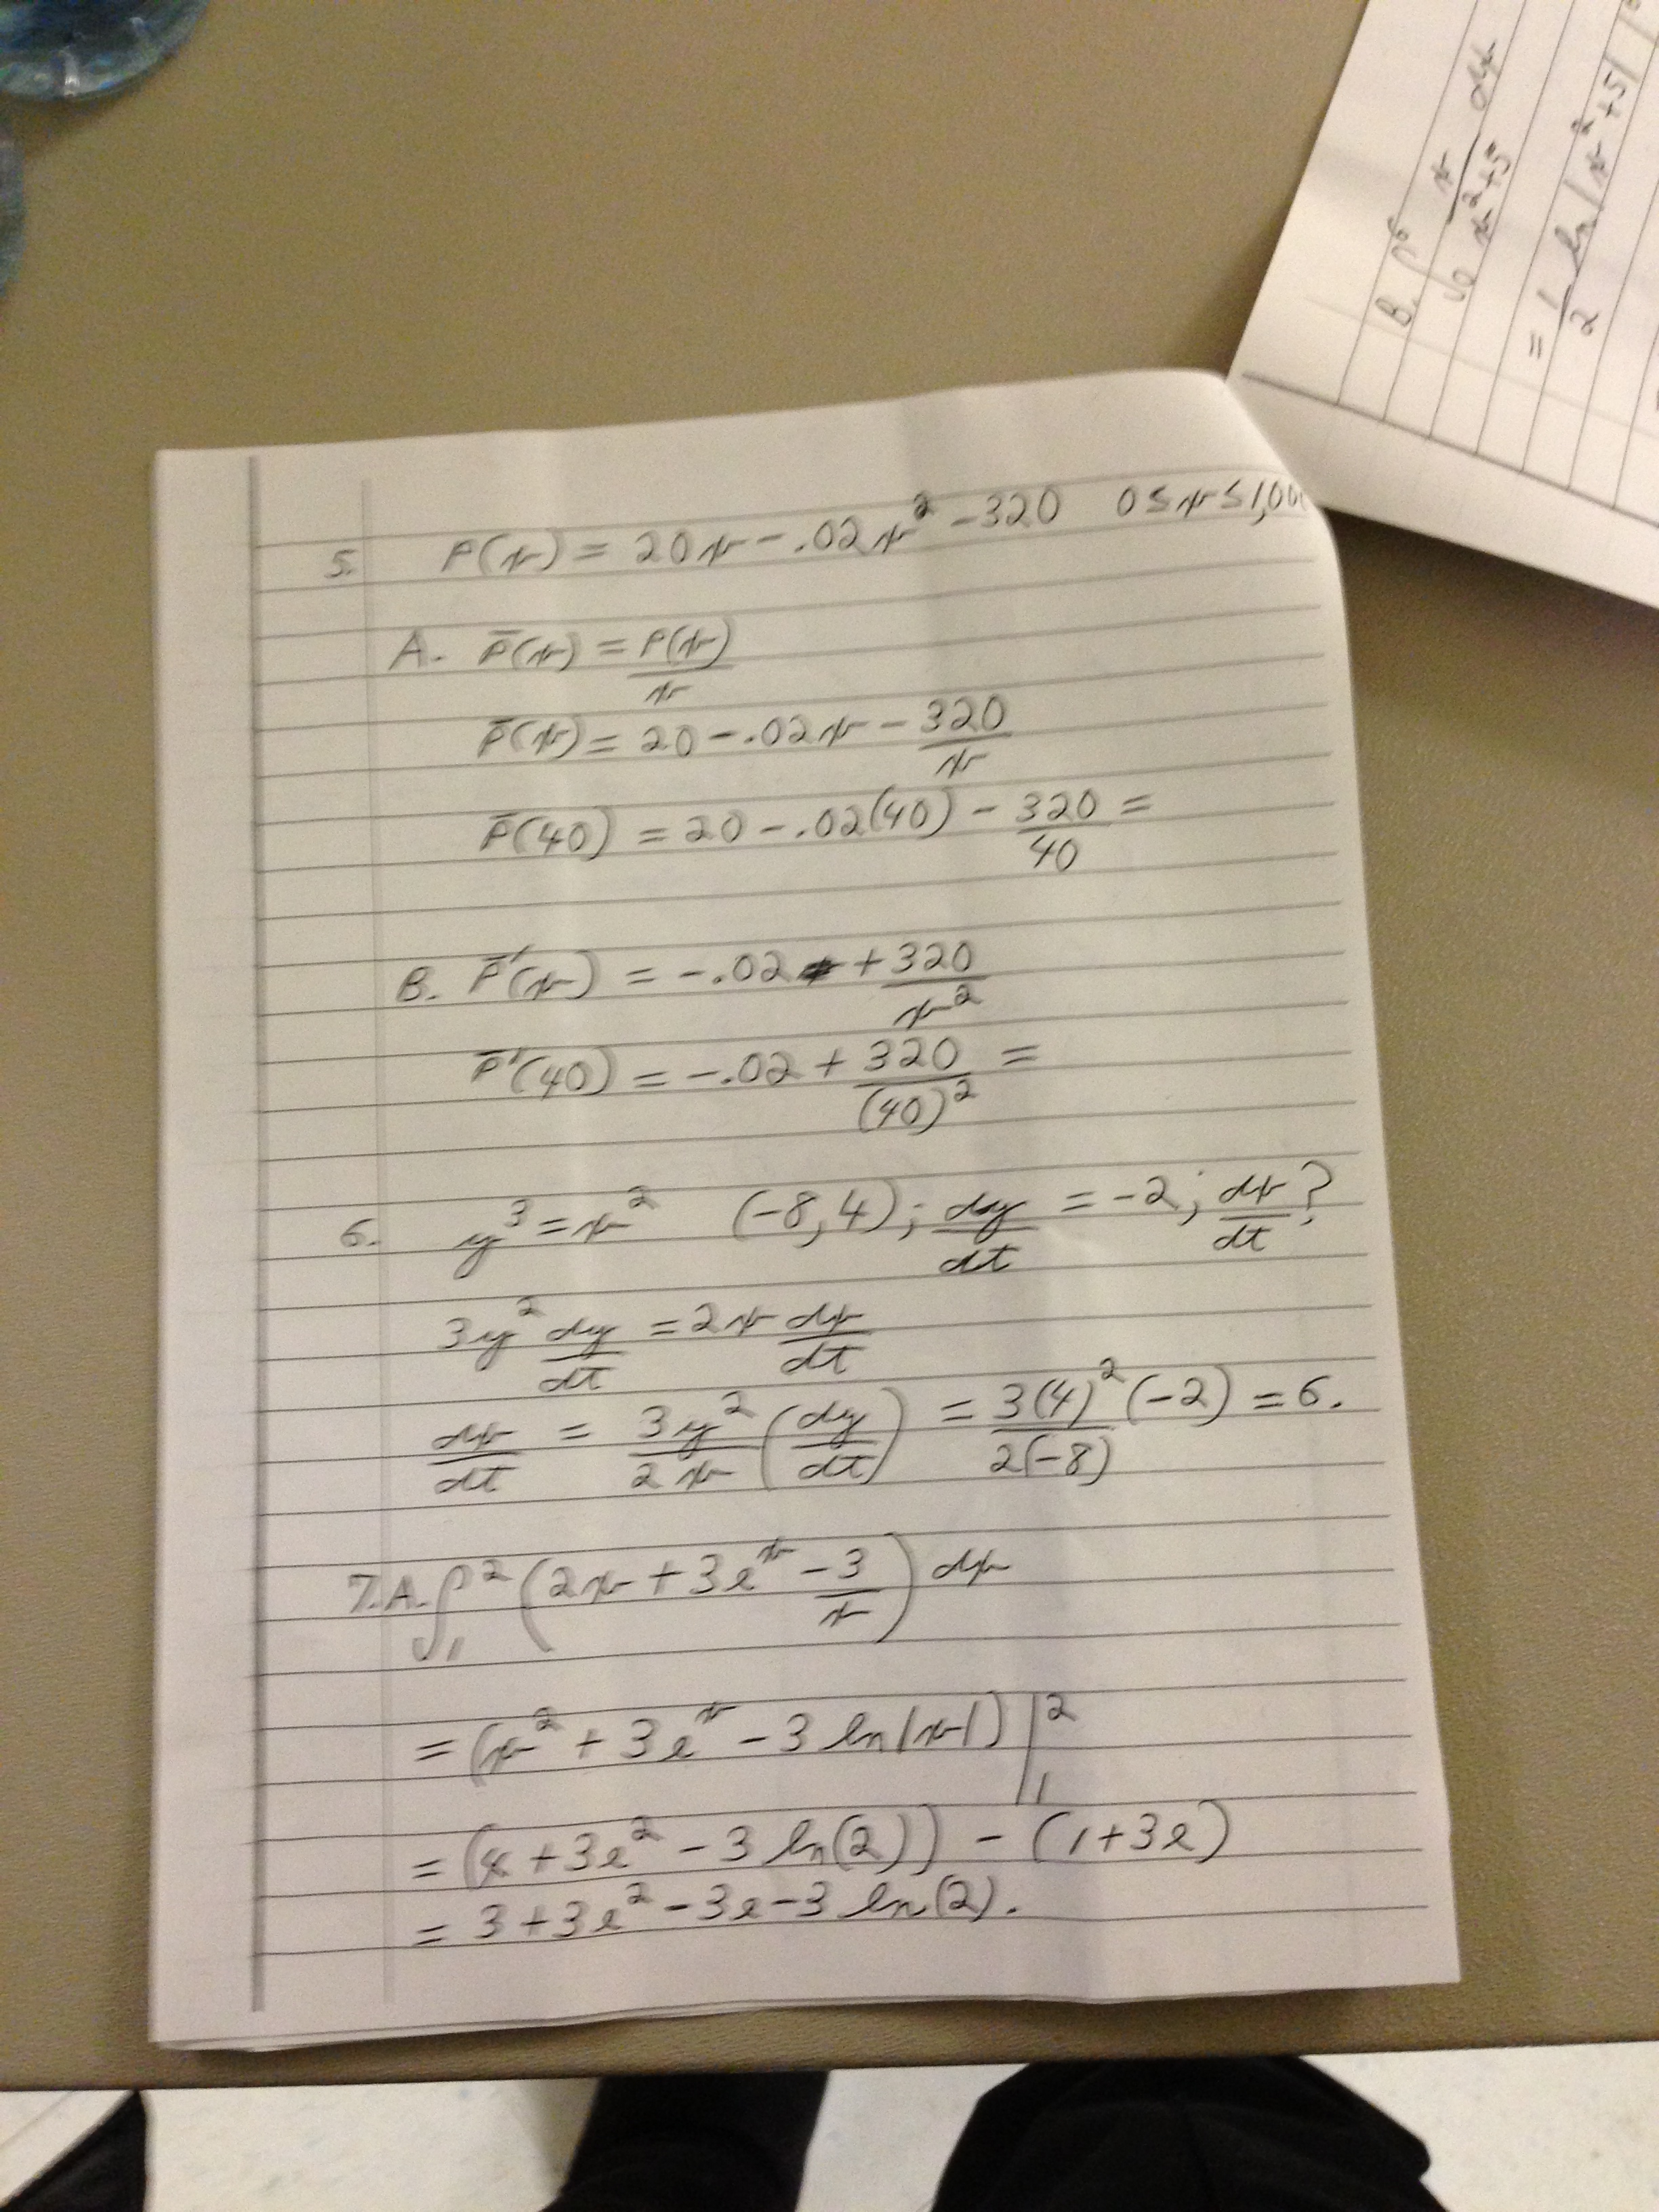 5. P(x) = 20x - .02x² - 320 0 ≤ x ≤ 1,00
A. P̅(x) = P(x)/x
P̅(x) = 20 - .02x - 320/x
P̅(40) = 20 - .02(40) - 320/40 =
B. P̅'(x) = -.02 + 320/x²
P̅'(40) = -.02 + 320/(40)² =
6. y³ = x² (-8, 4); dy/dt = -2; dx/dt?
3y² dy/dt = 2x dx/dt
dx/dt = 3y²/2x (dy/dt) = 3(4)²/2(-8) (-2) = 6.
7.A. ∫₁² (2x + 3eˣ - 3/x) dx
= (x² + 3eˣ - 3 ln|x|) |₁²
= (4 + 3e² - 3 ln(2)) - (1 + 3e)
= 3 + 3e² - 3e - 3 ln(2).
B. ∫₀⁶ x/x²+5 dx
= 1/2 ln|x²+5| |